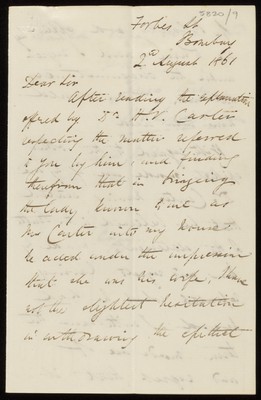 5820/9
Forbes St
Bombay
2nd August 1861
Dear Sir
After reading the explanation
offered by Dr. H.V. Carter
respecting the matter referred
to you by him, and finding
therefrom that in bringing
the lady known to me as
Mrs Carter into my house
he acted under the impression
that she was his wife, I have
not the slightest hesitation
in withdrawing the epithet